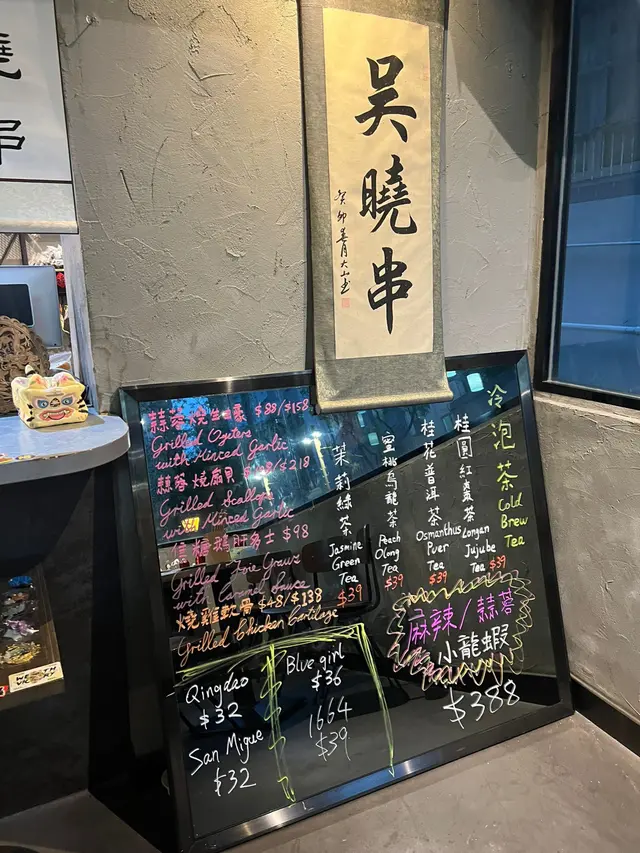 吳曉串
癸卯
蒜蓉燒生蠔 $88/$158
Grilled Oyters
with Minced Garlic
蒜蓉燒扇貝 /$218
Grilled Scallops
with Minced Garlic
焦糖鵝肝多士 $98
Grilled Foie Graws
with Caramel Sauce
燒雞軟骨 $48/$138
Grilled Chicken Cartilage
冷泡茶
Cold
Brew
Tea
桂圓紅棗茶
Longan
Jujube
Tea
$39
桂花普洱茶
Osmanthus
Puer
Tea
$39
蜜桃烏龍茶
Peach
Olong
Tea
$39
茉莉綠茶
Jasmine
Green
Tea
$39
麻辣/蒜蓉
小龍蝦
$388
Qingdao
$32
San Migue
$32
Blue girl
$36
1664
$39